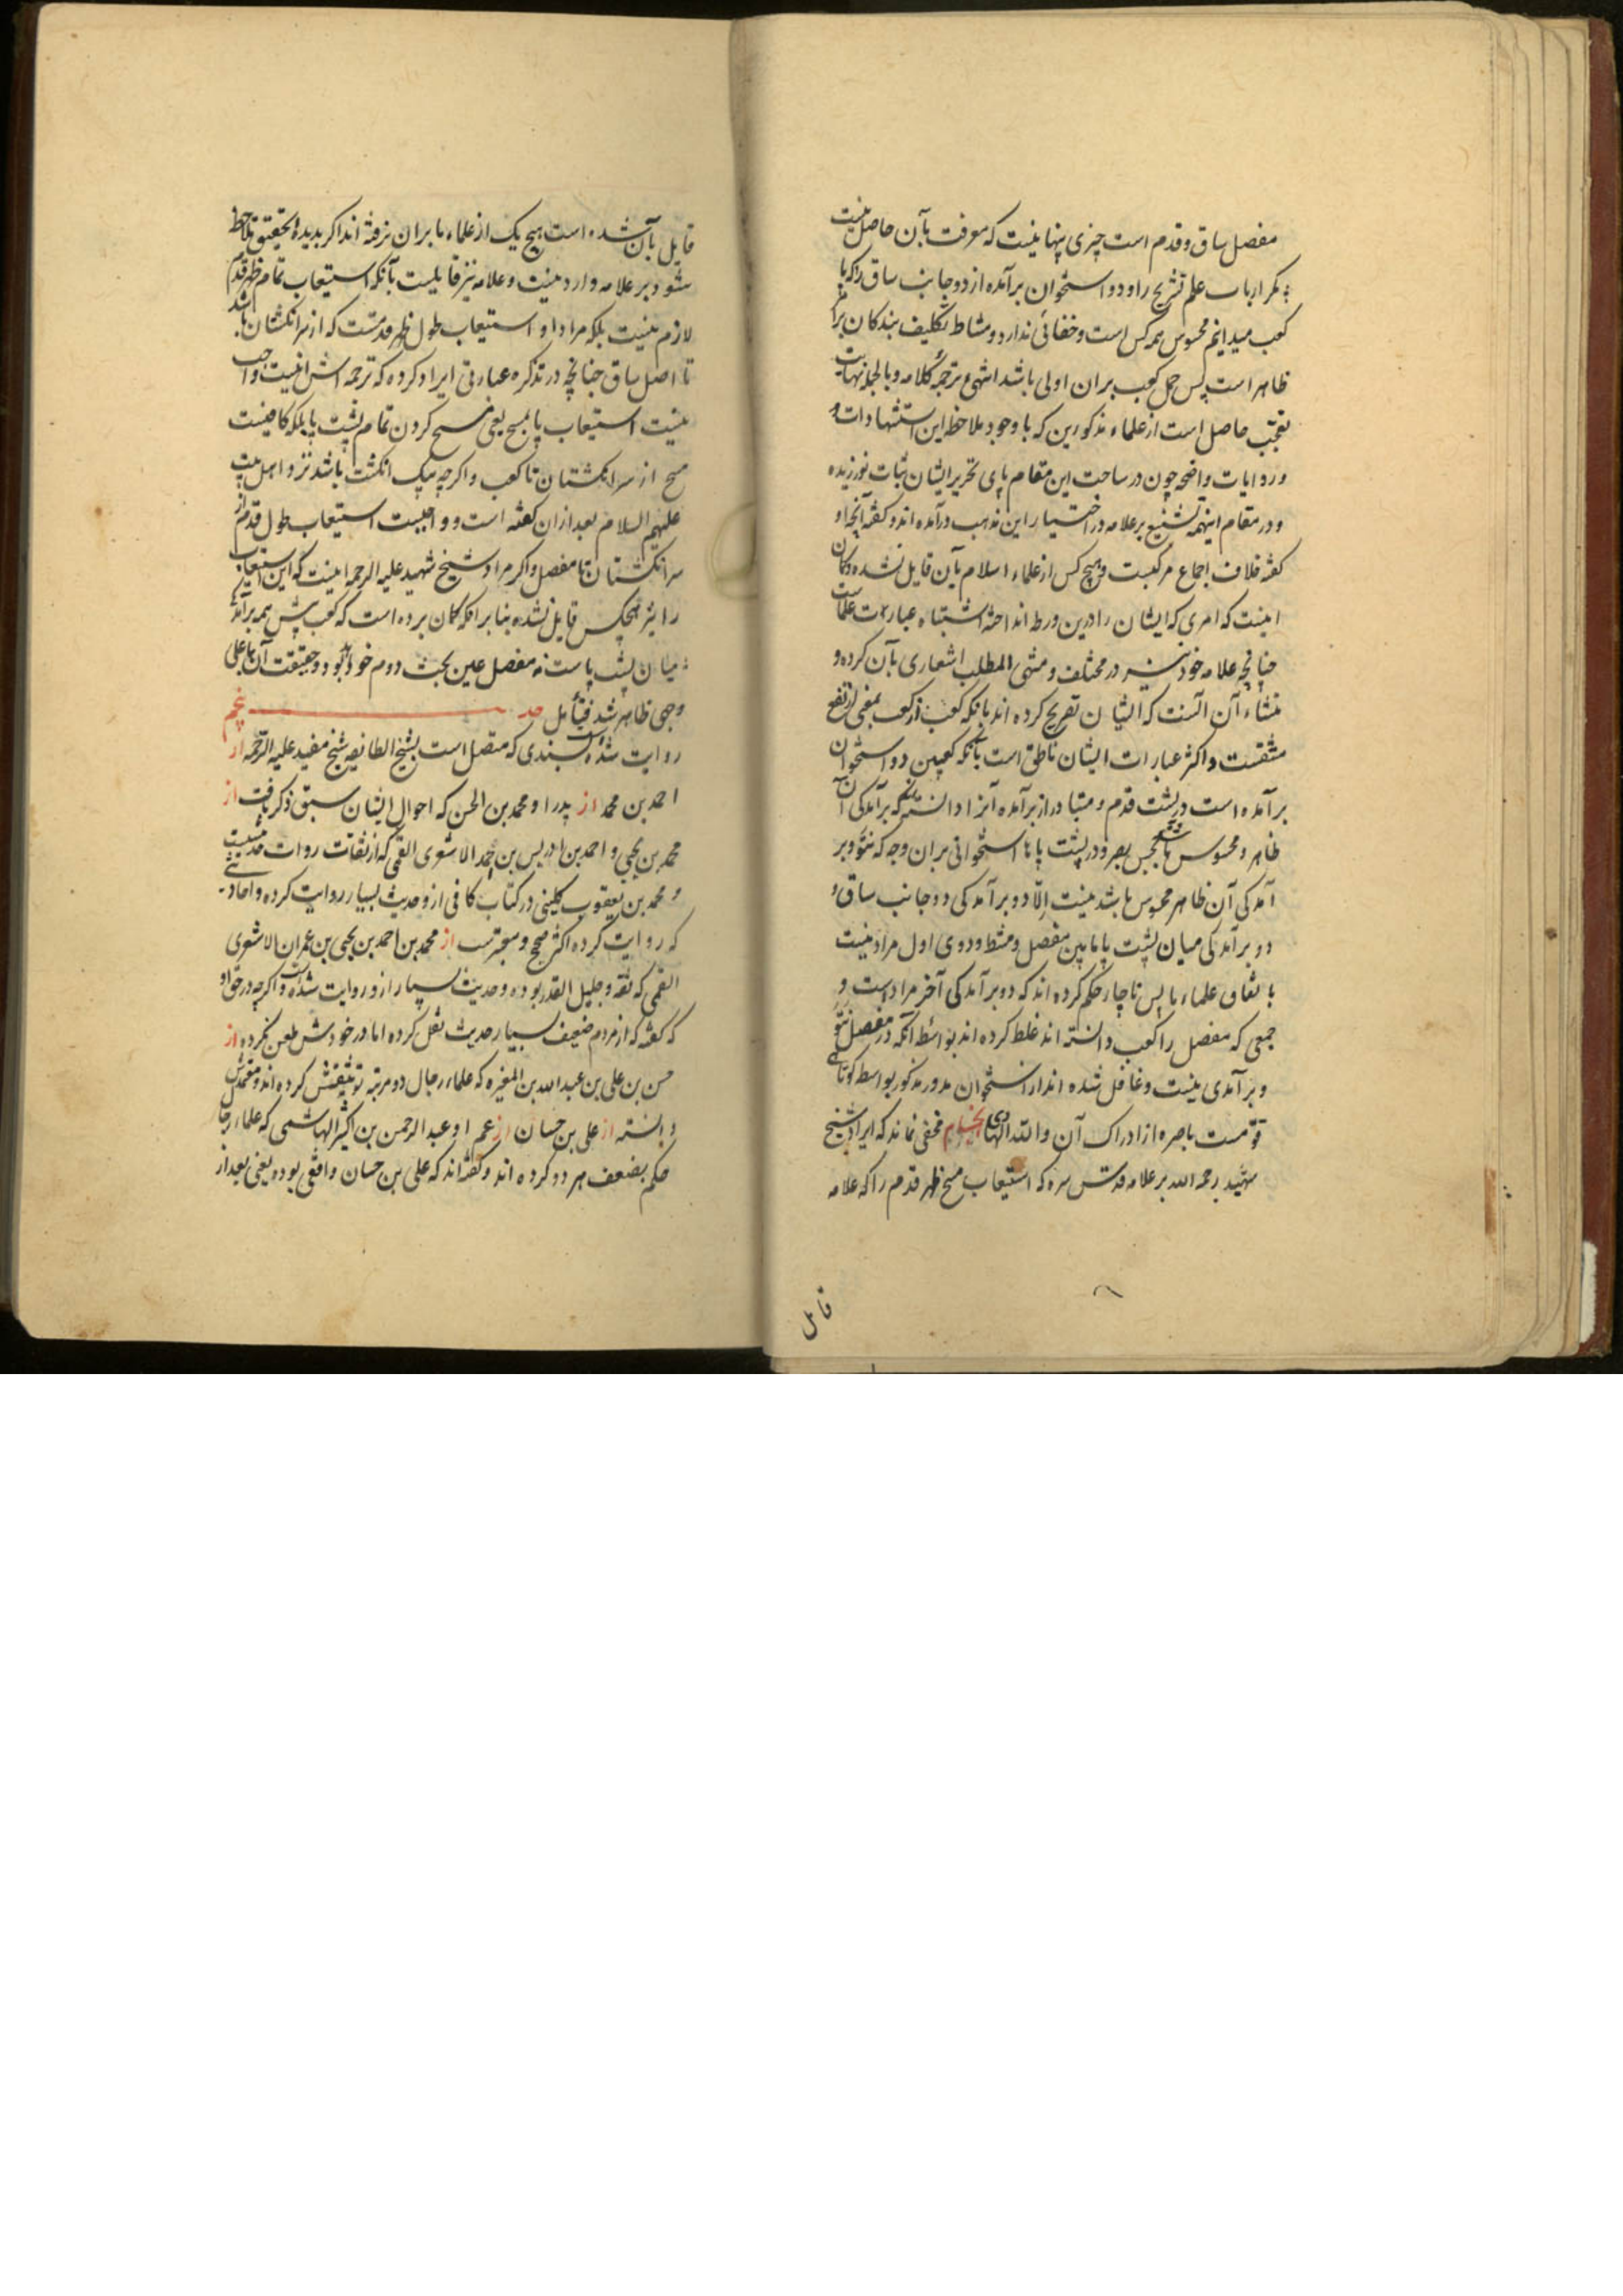 مفصل ساق و قدم است چیزی پنهانیست که معرفت بآن حاصل نیست
مکر ارباب علم تشریح را و دو استخوان برآمده از دو جانب ساق را که ما
کعب میدانیم محسوس همه کس است و خفائی ندارد و مناط تکلیف بندکان بر امر
ظاهر است پس حمل کعب بران اولی باشد انتهی ترجمة کلامه و بالجمله نهایت
تعجب حاصل است از علماء مذکورین که با وجود ملاحظه این استشهادات و
و روایات واضحه چون در ساحت این مقام پای تحریر ایشان ثبات نورزیده
و در مقام اینهمه تشنیع بر علامه در اختیار این مذهب درآمده اند و کفته آنچه او
کفته خلاف اجماع مرکبست و هیچ کس از علماء اسلام بآن قایل نشده و کمان
اینست که امری که ایشان را درین ورطه انداخته اشتباه عبارت علماست
چنانچه علامه خود نیز در مختلف و منتهی المطلب اشعاری بآن کرده و
منشاء آن آنست که ایشان تصریح کرده اند بانکه کعب از کعب بمعنی ارتفع
مشتقست و اکثر عبارات ایشان ناطق است بآنکه کعبین دو استخوان
برآمده است در پشت قدم و متبادر از برآمده آنرا دانسته که برآمدکی آن
ظاهر و محسوس باشد بحس بصر و در پشت پاها استخوانی بران وجه که نتوّ و بر
آمدکی آن ظاهر محسوس باشد نیست الّا دو برآمدکی دو جانب ساق و
دو برآمدکی میان پشت پا ما بین مفصل و مشط و دوی اول مراد نیست
باتفاق علماء ما پس ناچار حکم کرده اند که دو برآمدکی آخر مراد است و
جمعی که مفصل را کعب دانسته اند غلط کرده اند بواسطه آنکه در مفصل نتوّ
و برآمدی نیست و غافل شده اند از استخوان مدور مذکور بواسطه کوتاهی
قوّت باصره از ادراک آن والله الهادی مخفی نماند که ایراد شیخ
شهید رحمه الله بر علامه قدس سره که استیعاب مسح ظهر قدم را که علامه
قایل
قایل بآن شده است هیچ یک از علماء ما بران نرفته اند اکر بدیده تحقیق ملاحظه
شود بر علامه وارد نیست و علامه نیز قایلیست بآنکه استیعاب تمام ظهر قدم
لازم نیست بلکه مراد او استیعاب طول ظهر قدمست که از سر انکشتان باشد
تا اصل ساق چنانچه در تذکره عبارتی ایراد کرده که ترجمه اش اینست واجب
نیست استیعاب پا بمسح یعنی مسح کردن تمام پشت پا بلکه کافیست
مسح از سر انکشتان تا کعب و اکرچه بیک انکشت باشد نزد اهل بیت
علیهم السلام بعد ازان کفته است و واجبست استیعاب طول قدم از
سر انکشتان تا مفصل و اکر مراد شیخ شهید علیه الرحمه اینست که این استیعاب
را نیز هیچکس قایل نشده بنا بر انکه کمان برده است که کعب پیش همه برآمدکی
میان پشت پاست نه مفصل عین بحث دوم خواهد بود و حقیقت آن بر اعلی
وجهی ظاهر شد فتأمل حد یث پنجم
روایت شده است بسندی که متصل است بشیخ الطائفه شیخ مفید علیه الرحمه از
احمد بن محمد از پدر او محمد بن الحسن که احوال ایشان سبق ذکر یافت از
محمد بن یحیی و احمد بن ادریس بن احمد الاشعری القمی که از ثقات روات
و محمد بن یعقوب کلینی در کتاب کافی ازو حدیث بسیار روایت کرده و احادیثی
که روایت کرده اکثر صحیح و معتبرست از محمد بن احمد بن یحیی بن عمران الاشعری
القمی که ثقه و جلیل القدر بوده و حدیث بسیار ازو روایت شده است و اکرچه در حق او
که کفته که از مردم ضعیف بسیار حدیث نقل کرده اما در خودش طعن نکرده از
حسن بن علی بن عبدالله بن المغیره که علماء رجال دو مرتبه توثیقش کرده اند و معتمدش
دانسته از علی بن حسان از عم او عبدالرحمن بن کثیر الهاشمی که علماء رجال
حکم بضعف هر دو کرده اند و کفته اند که علی بن حسان واقفی بوده یعنی بعد از